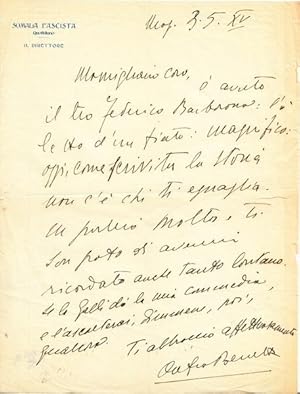 SOMALIA FASCISTA
Quotidiano
IL DIRETTORE
Mog. 3.5.XV
Momigliano caro,
è arrivato
il tuo Federico Barbarossa: l'ò
letto d'un fiato: magnifico:
oggi, come scrivi tu la storia
non c'è chi ti eguaglia.
molto e ti
son grato di avermi
ricordato anche tanto lontano.
Se la Galli dà la mia commedia
e l'ascolterai, dimmene, poi,
qualcosa.
Ti abbraccio affettuosamente